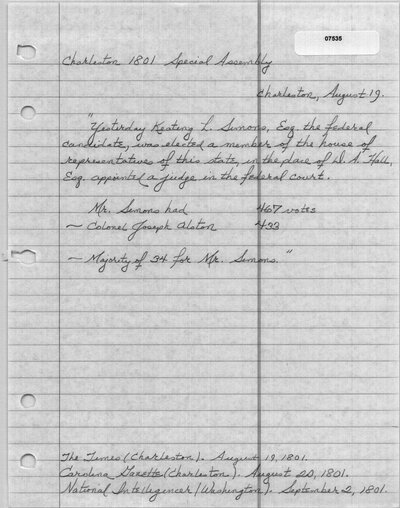 07535
Charleston 1801 Special Assembly
Charleston, August 19.
"Yesterday Keating L. Simons, Esq. the federal
candidate, was elected a member of the house of
representatives of this state, in the place of D. A. Hall,
Esq. appointed a judge in the federal court.
Mr. Simons had 467 votes
— Colonel Joseph Alston 433
— Majority of 34 for Mr. Simons."
The Times (Charleston). August 19, 1801.
Carolina Gazette (Charleston). August 20, 1801.
National Intelligencer (Washington). September 2, 1801.